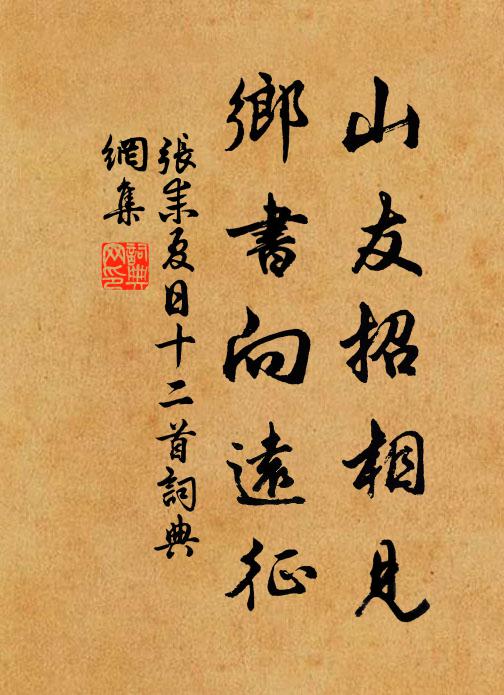 山友招相見
鄉書向遠征
張耒夏日十二首詞典
網集
詞典
网印